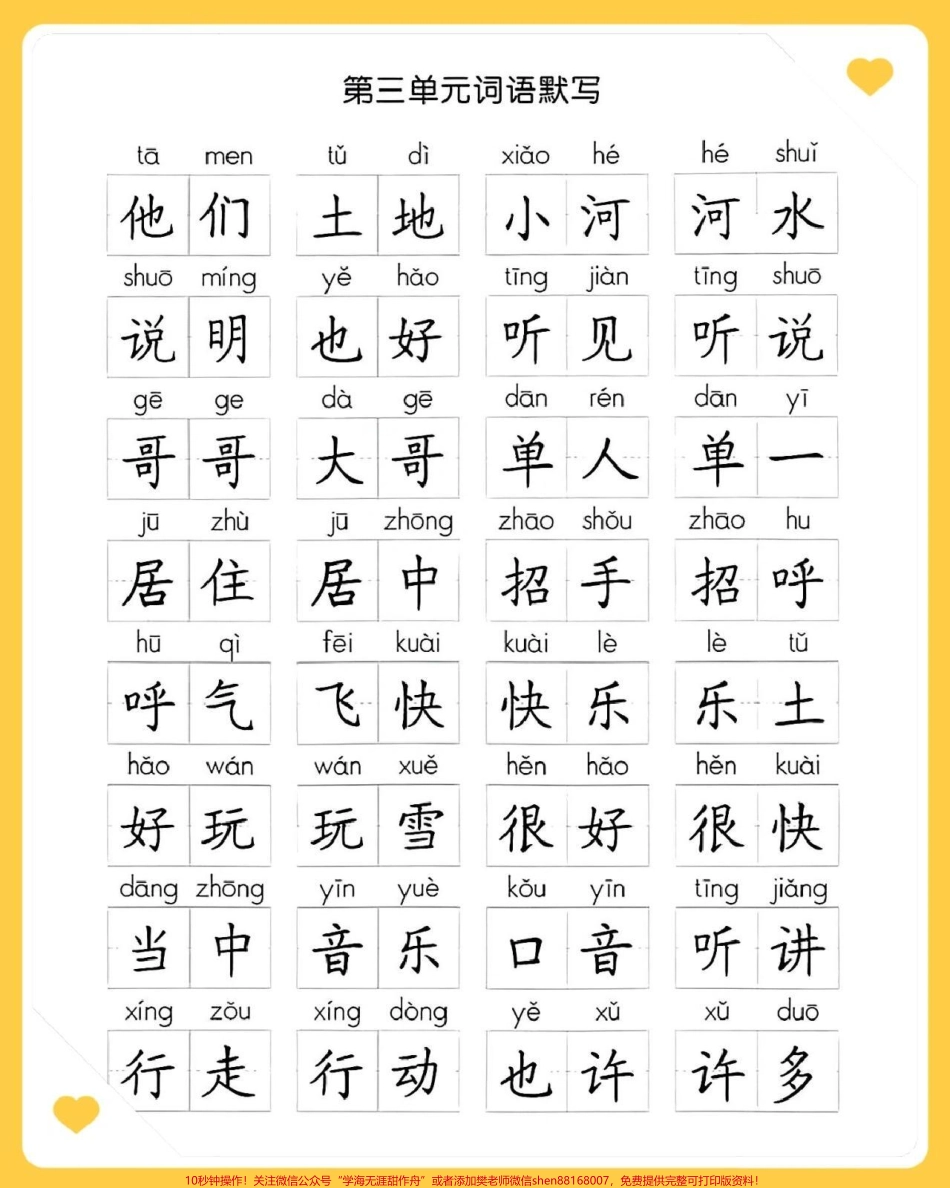 第三单元词语默写
tā men tǔ dì xiǎo hé hé shuǐ
他们 土地 小河 河水
shuō míng yě hǎo tīng jiàn tīng shuō
说明 也好 听见 听说
gē ge dà gē dān rén dān yī
哥哥 大哥 单人 单一
jū zhù jū zhōng zhāo shǒu zhāo hu
居住 居中 招手 招呼
hū qì fēi kuài kuài lè lè tǔ
呼气 飞快 快乐 乐土
hǎo wán wán xuě hěn hǎo hěn kuài
好玩 玩雪 很好 很快
dāng zhōng yīn yuè kǒu yīn tīng jiǎng
当中 音乐 口音 听讲
xíng zǒu xíng dòng yě xǔ xǔ duō
行走 行动 也许 许多
10秒钟操作！关注微信公众号“学海无涯甜作舟”或者添加樊老师微信shen88168007，免费提供完整可打印版资料！